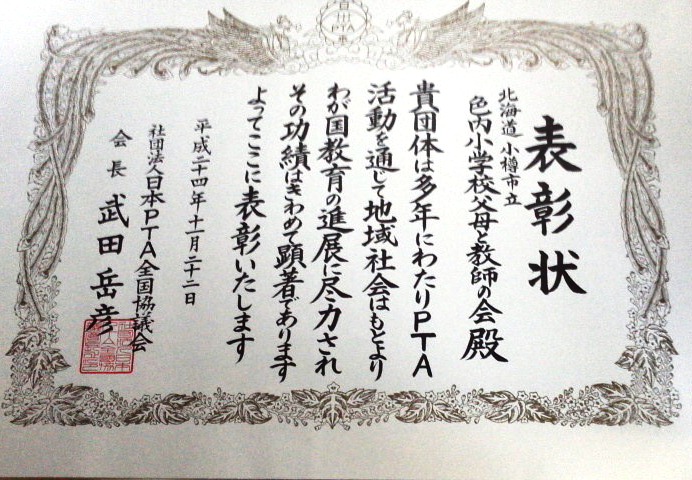 表彰状
北海道小樽市立
色内小学校父母と教師の会殿
貴団体は多年にわたりPTA
活動を通じて地域社会はもとより
わが国教育の進展に尽力され
その功績はきわめて顕著であります
よってここに表彰いたします
平成二十四年十一月二十二日
社団法人日本PTA全国協議会
会長 武田岳彦